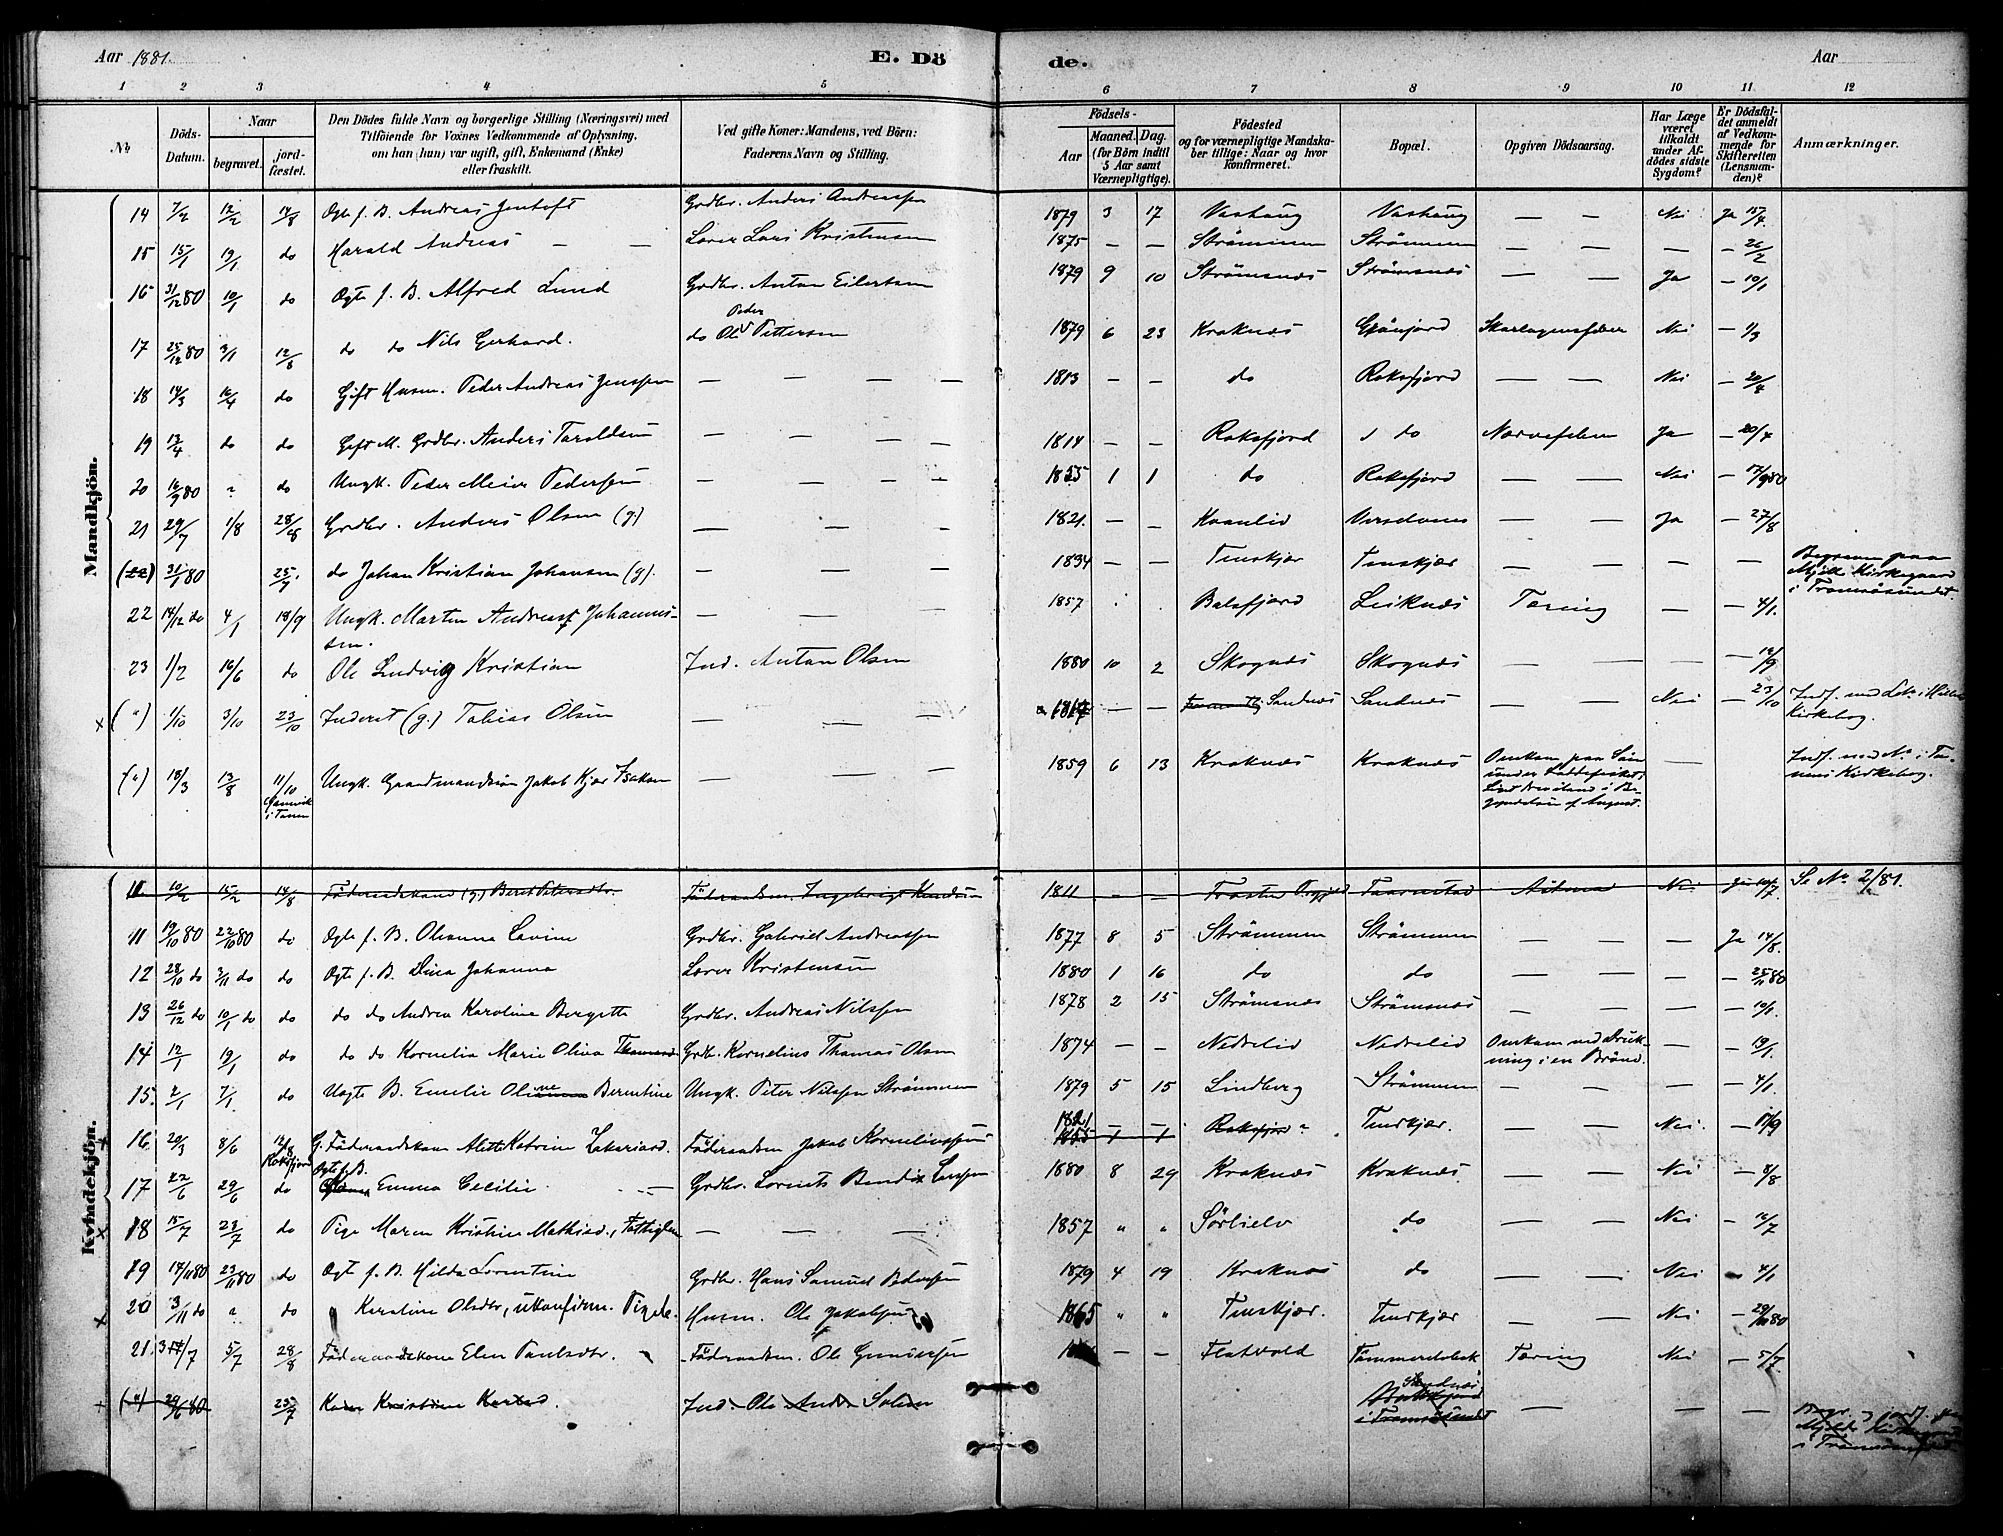 Aar 1881. E. Dö de. Aar
1 2 3 4 5 6 7 8 9 10 11 12
No. Döds-Datum. Naar begravet. jordfæstet. Den Dödes fulde Navn og borgerlige Stilling (Næringsvei) med Tilföiende for Voxnes Vedkommende af Oplysning, om han (hun) var ugift, gift, Enkemand (Enke) eller fraskilt. Ved gifte Koner: Mandens, ved Börn: Faderens Navn og Stilling. Födsels- Aar Maaned. Dag. (for Börn indtil 5 Aar samt Værnepligtige). Födested og for værnepligtige Mandskaber tillige: Naar og hvor konfirmeret. Bopæl. Opgiven Dödsaarsag. Har Læge været tilkaldt under Afdödes sidste Sygdom? Er Dödsfaldet anmeldt af Vedkommende for Skifteretten (Lensmanden)? Anmærkninger.
Mandkjön.
14 7/2 12/2 14/8 Ægte f. B. Andreas Jentoft Grdbr. Anders Andreassen 1879 3 17 Vashaug Vashaug — — Nei Ja 15/4
15 15/1 19/1 do Harald Andreas — — Lærer Lars Kristensen 1875 — — Strömmen Strömmen — — — — 26/2
16 31/12 80 10/1 do Ægte f. B. Alfred Lund Grdbr. Anton Eilertsen 1879 9 10 Strömsnæs Strömsnæs — — Ja — 10/1
17 25/12 80 3/1 12/8 do do Nils Gerhard. do Ole Peder Pettersen 1879 6 23 Kraknæs Grönjord Skarlagensfeber Nei — 1/3
18 14/3 16/4 do Gift Husm. Peder Andreas Jenssen — — — 1813 — — do Raksfjord — — Nei — 20/4
19 13/4 do do Gift M. Grdbr. Anders Taraldsen — — — 1814 — — Raksfjord do Nervefeber Ja — 20/4
20 16/9 80 " do Ungk. Peder Meier Pedersen — — — 1855 1 1 do Raksfjord — — Nei — 17/9 80
21 29/7 1/8 28/8 Grdbr. Anders Olsen (g.) — — — 1821. — — Kvanlid — — Ja — 27/8
(22) 31/1 80 25/9 do Johan Kristian Johansen (g). — — — 1834 — — Tenskjær Tenskjær — — — — Begraven paa Mjelde Kirkegaard i Tromsösundet.
22 14/12 do 4/1 18/9 Ungk. Martin Andreas Johannessen. — — — 1857 Balsfjord Leiknæs Tæring — — 4/1.
23 1/2 16/6 do Ole Ludvig Kristian Ind. Anton Olsen 1880 10 2 Skognæs Skognæs — — — — 12/9
(") 1/10 3/10 23/10 Inderst (g.) Tobias Olsen — — — 1817 — — Sandnæs Sandnæs — — Nei — 23/10 Indf. med Kirkebog.
(") 18/3 13/8 11/10 Ungk. Gaardmandssön Jakob Kjær Isaksen — — — 1859 6 13 Kraknæs Kraknæs Omkom paa Söen under Loddefisket. Begyndelsen af August. — Indf. med No i Tanens Kirkebog.
Kvindekjön.
11 10/2 15/2 14/8 Föderaadskone (g) Berit Pedersdtr. Föderaadsm. Ingebrigt Knudsen 1811 — — Taarnstad Nei Ja 10/7 Se No. 2/81.
11 19/10 80 22/10 80 do Ægte f. B. Oleanna Lavine Grdbr. Gabriel Andreassen 1877 8 5 Strömmen Strömmen — — — Ja 14/8.
12 28/10 do 3/11 do do Ægte f. B. Dina Johanna Lærer Kristensen 1880 1 16 do do — — — — 25/11 80
13 26/12 do 10/1 do do do do Andrea Karoline Bergitte Grdbr. Andreas Nilssen 1878 2 15 Strömsnæs Strömsnæs — — — — 10/1.
14 12/1 19/1 do do do Kornelia Marie Oliva Grdbr. Kornelius Thomas Olsen 1874 — — Nedrelid Nedrelid Omkom ved Drukning i en Brönd. — — 19/1.
15. 2/1 7/1. do Uægte B. Emelie Oline Berntine Ungk. Peter Nilssen Strömmen 1879 5 15 Lindberg Strömmen — — — — 4/1
16 20/3 8/6 12/8 Raksfjord G. Föderaadskone Alette Katrine Zakariasd. Föderaadsm. Jakob Korneliussen 1821 1855 — 1 — 1 Raksfjord Tenskjær. — — Nei. — 17/9
17 22/6 29/6 do Ægte f. B. Emma Cecilie — Grdbr. Lorents Bendix Larssen 1880 8 29 Kraknæs Kraknæs — — Nei — 8/8
18 15/7 23/7 do Pige Maren Kristine Mathisd., Fattiglem — — — 1857 " " Sörlielv do — — Nei — 12/7
19 14/11 80 23/11 80 do Ægt f. B. Hilda Lorentine Grdbr. Hans Samuel Pedersen 1879 4 19 Kraknæs do — — Nei — 4/1
20 3/11 do " do Karoline Olsdtr, ukonfirm. Pige Husm. Ole Jakobsen 1865 " " Tenskjær. Tenskjær — — Nei — 29/11 80
21. 3/7 5/7 28/8 Föderaadskone Elen Paulsdtr. Föderaadsm. Ole Gundersen — — Flatvold Tömmerelvbak Tæring Nei — 5/7
(") 29/6 80 25/7 Karen Kristine Ind. Ole Andr. Solem Sandnæs i Tromsösundet — — — — Begr. og jordf. paa Mjelde Kirkegaard i Tromsösundet